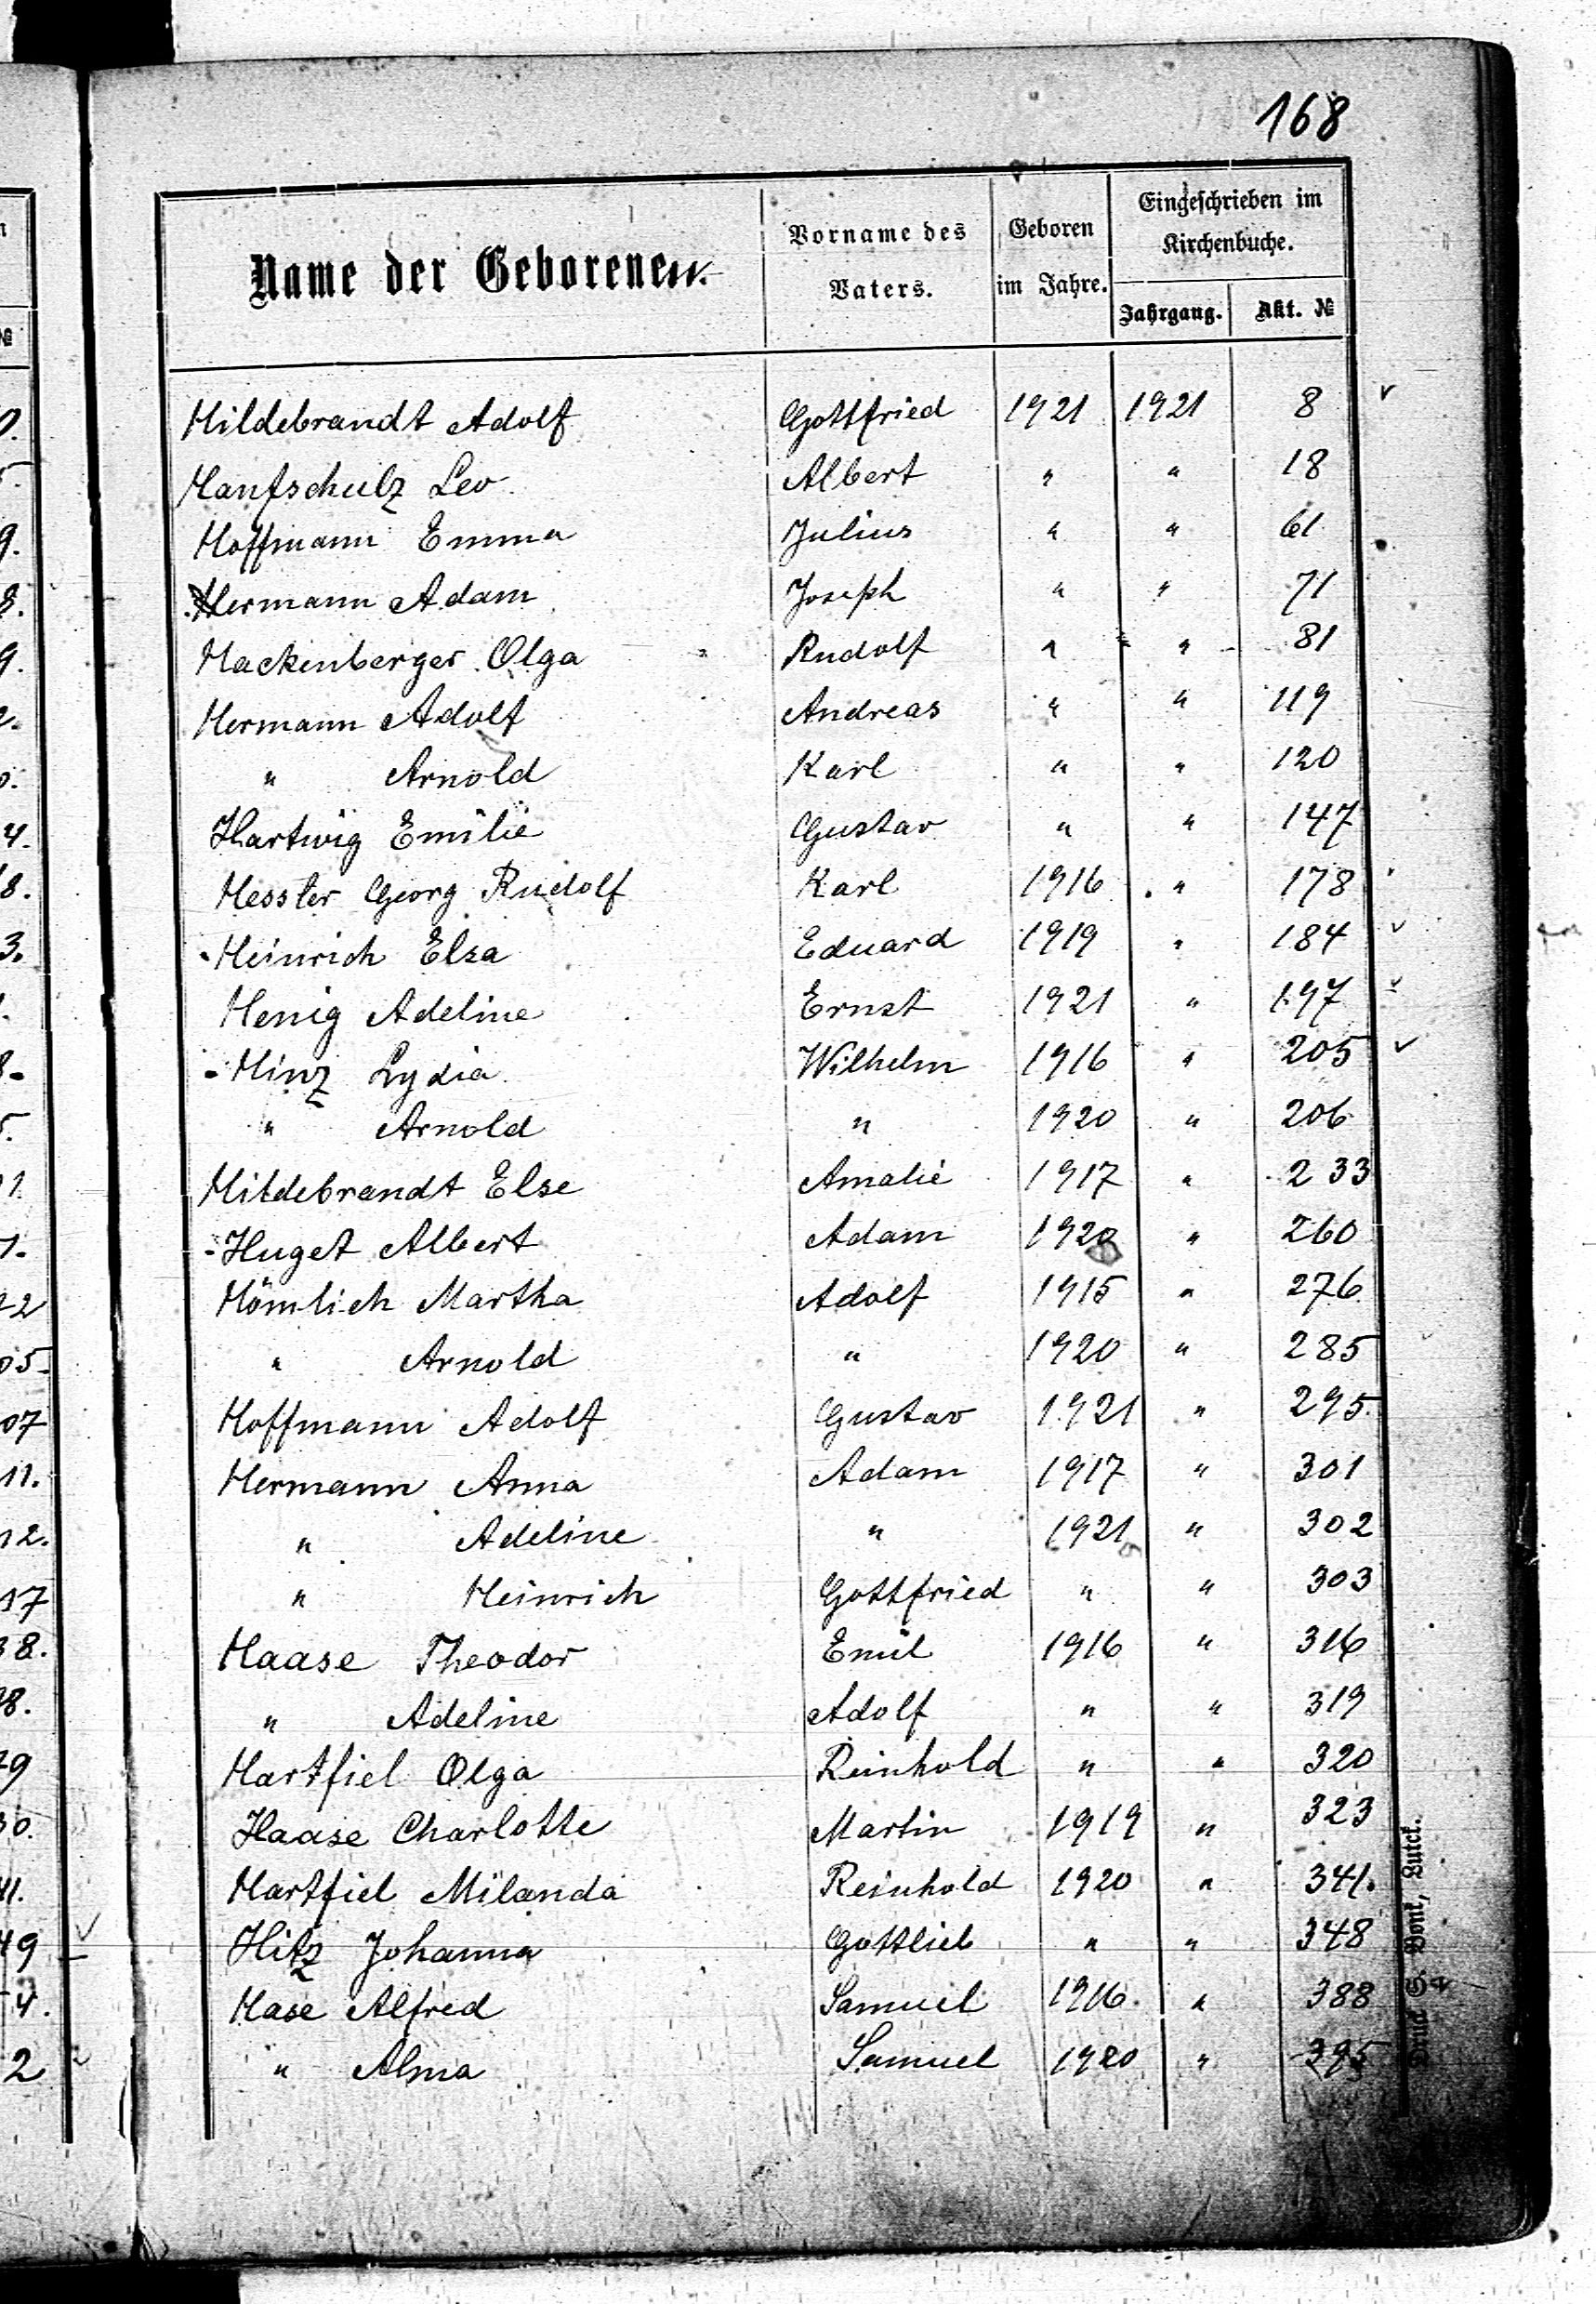 168
Name der Geborenen.
Vorname des Vaters.
Geboren im Jahre.
Eingeschrieben im Kirchenbuche.
Jahrgang. Akt. №
Hildebrandt Adolf Gottfried 1921 1921 8 v
Hanfschulz Leo Albert " " 18
Hoffmann Emma Julius " " 61
Hermann Adam Joseph " " 71
Hackenberger Olga Rudolf " " 81
Hermann Adolf Andreas " " 119
" Arnold Karl " " 120
Hartwig Emilie Gustav " " 147
Hessler Georg Rudolf Karl 1916 " 178
Heinrich Elsa Eduard 1919 " 184 v
Henig Adeline Ernst 1921 " 197 v
Hinz Lydia Wilhelm 1916 " 205 v
" Arnold " 1920 " 206
Hildebrandt Else Amalie 1917 " 233
Huget Albert Adam 1920 " 260
Hömlich Martha Adolf 1915 " 276
" Arnold " 1920 " 285
Hoffmann Adolf Gustav 1921 " 295.
Hermann Anna Adam 1917 " 301
" Adeline " 1921 " 302
" Heinrich Gottfried " " 303
Haase Theodor Emil 1916 " 316
" Adeline Adolf " " 319
Hartfiel Olga Reinhold " " 320
Haase Charlotte Martin 1919 " 323
Hartfiel Milanda Reinhold 1920 " 341.
Hitz Johanna Gottlieb " " 348
Hase Alfred Samuel 1916. " 388
" Alma Samuel 1920 " 395
Druck S. Bonk, Luck.